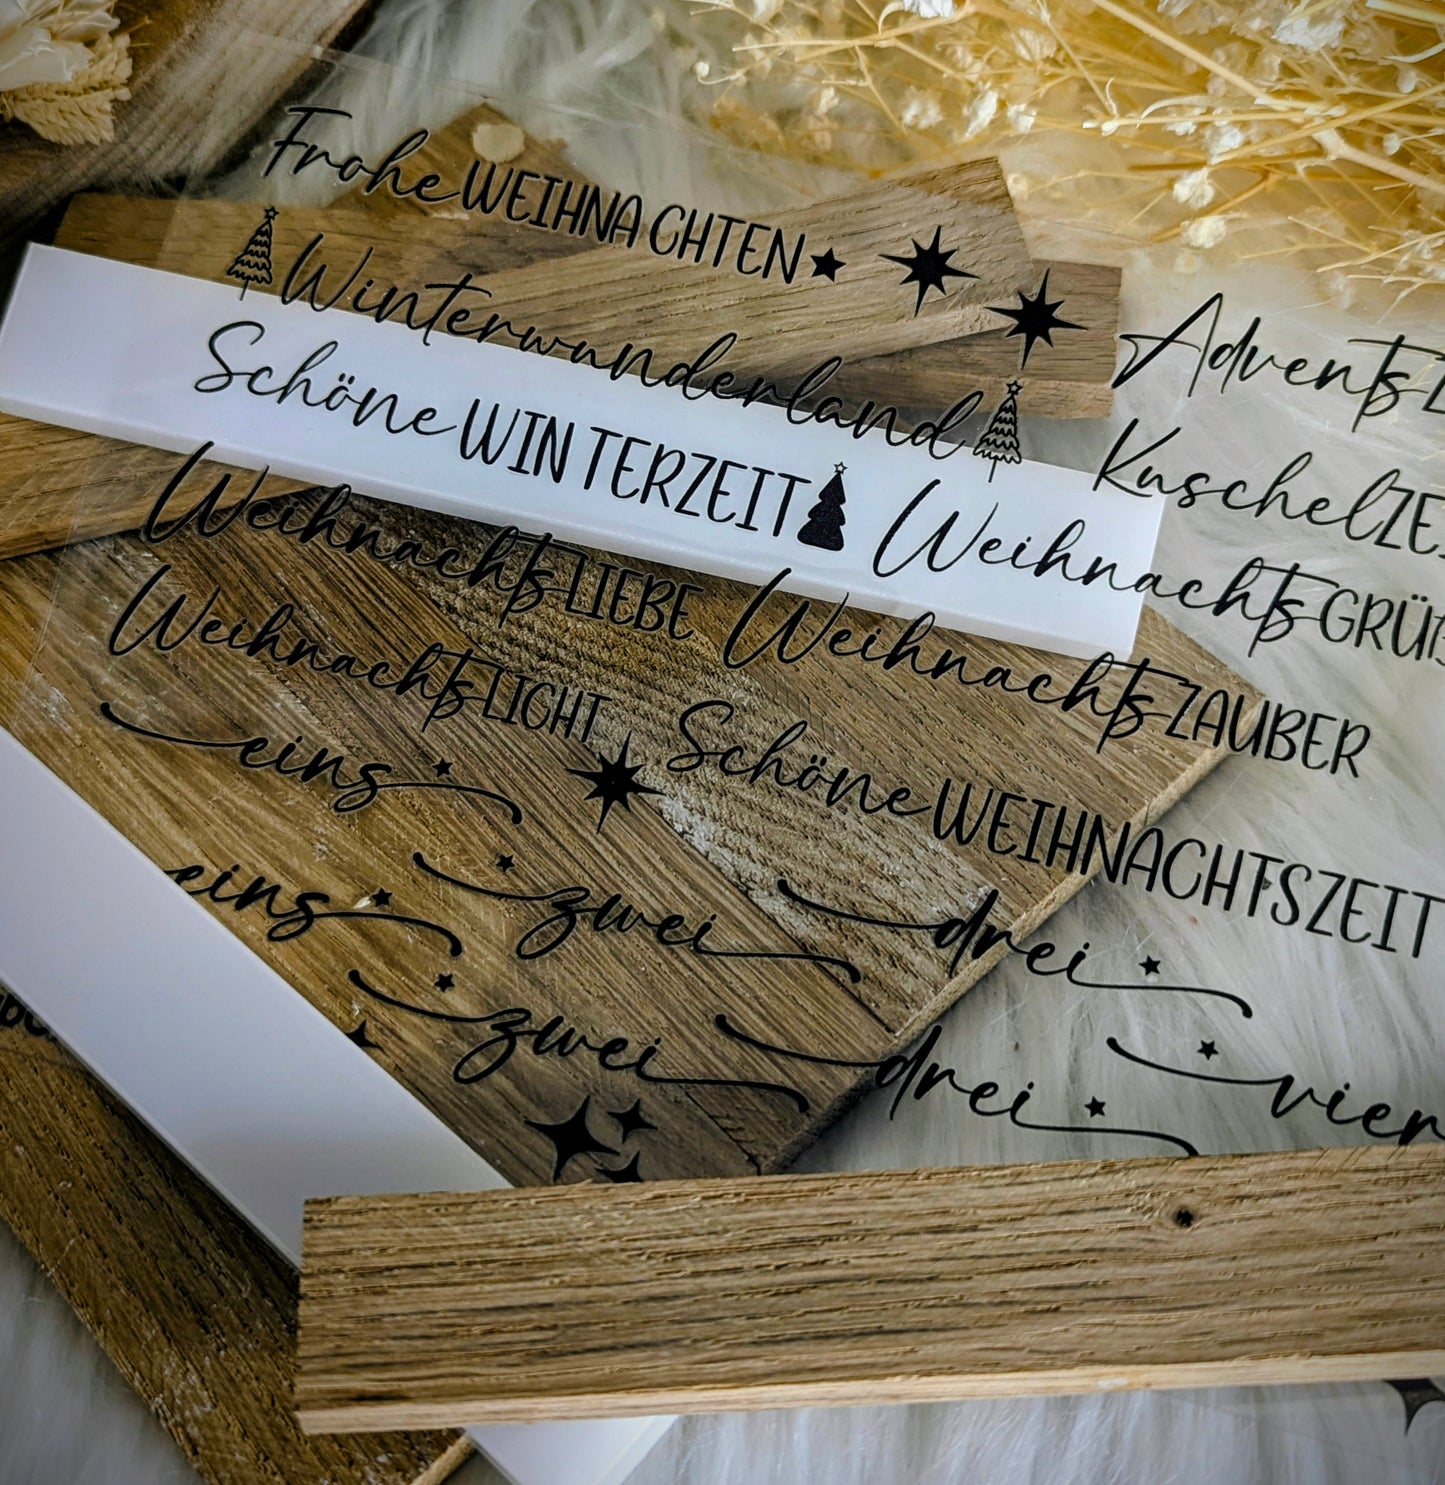 Frohe WEIHNACHTEN
Winterwunderland
Schöne WINTERZEIT
WeihnachtsLIEBE
WeihnachtsLICHT
eins
eins
zwei
zwei
Advents
Kuschel
Weihnachts
WeihnachtsZAUBER
Schöne WEIHNACHTSZEIT
drei
drei
vier